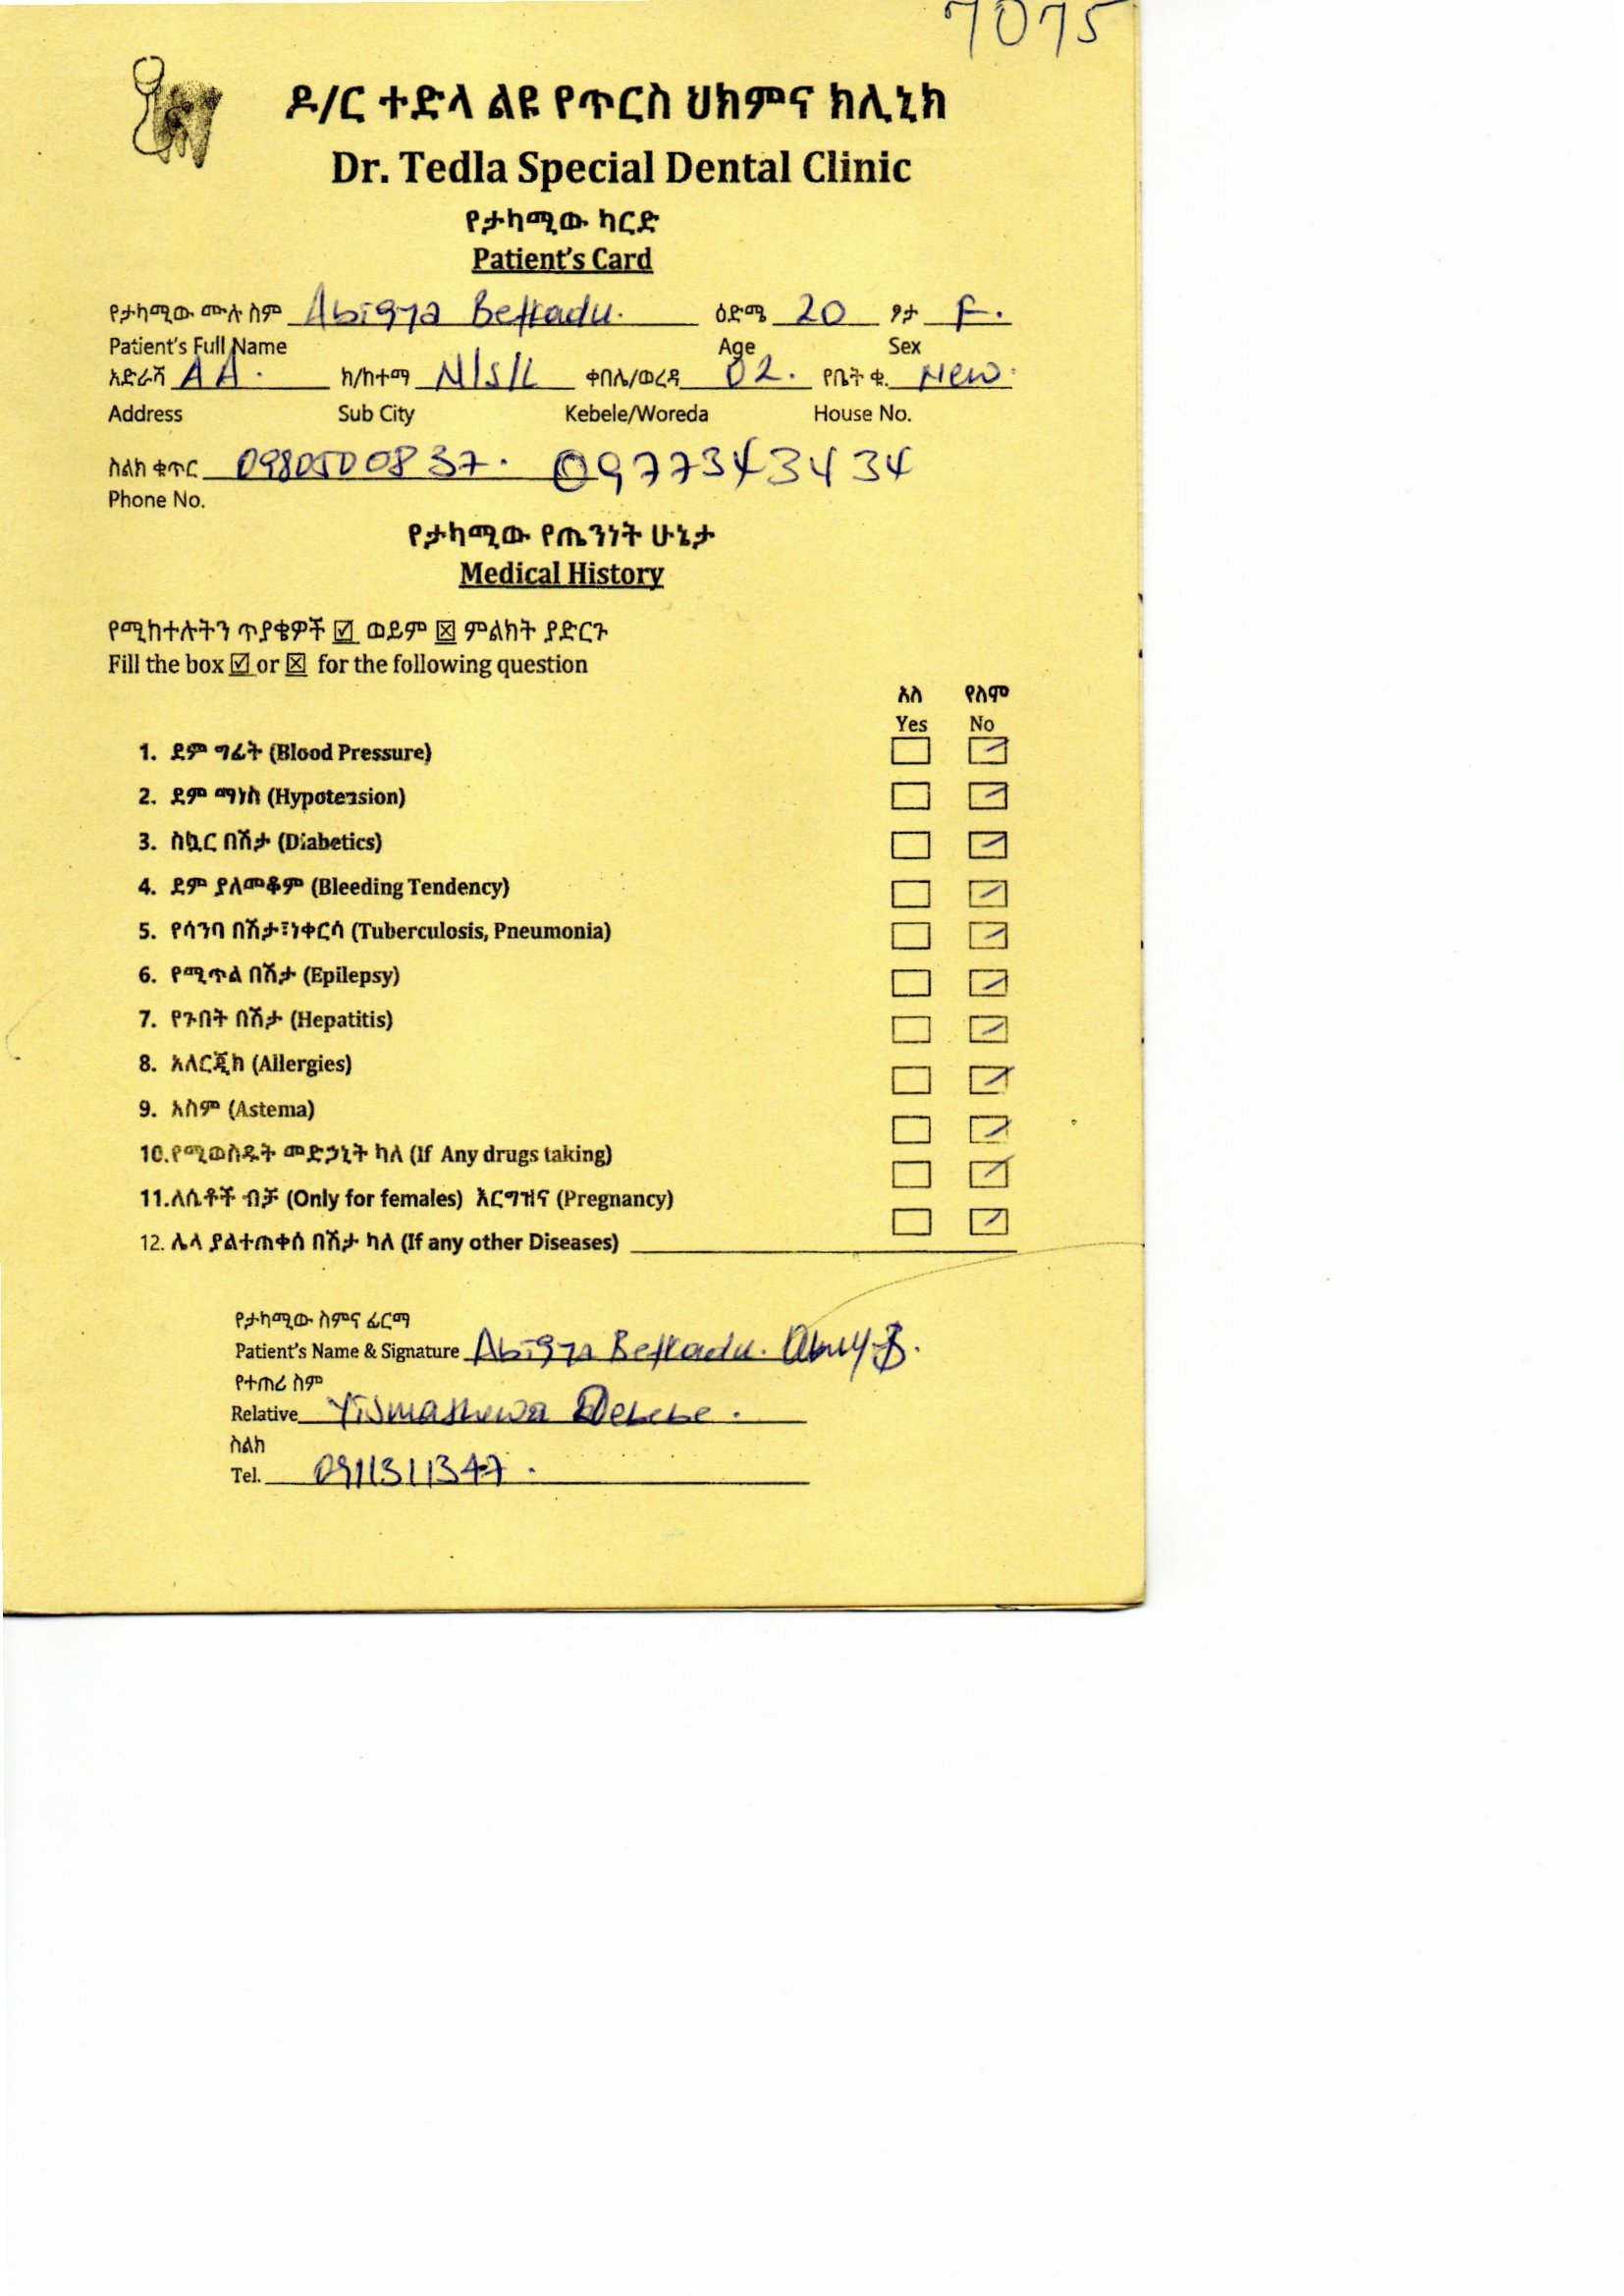 7075
ዶ/ር ተድላ ልዩ የጥርስ ህክምና ክሊኒክ
Dr. Tedla Special Dental Clinic
የታካሚው ካርድ
Patient's Card
የታካሚው ሙሉ ስም Abigya Befkadu. ዕድሜ 20 ፆታ F.
Patient's Full Name Age Sex
አድራሻ AA. ክ/ከተማ N/S/L ቀበሌ/ወረዳ 02. የቤት ቁ. New.
Address Sub City Kebele/Woreda House No.
ስልክ ቁጥር 0980500837. 0977343434
Phone No.
የታካሚው የጤንነት ሁኔታ
Medical History
የሚከተሉትን ጥያቄዎች ☑ ወይም ☒ ምልክት ያድርጉ
Fill the box ☑ or ☒ for the following question
አለ የለም
Yes No
1. ደም ግፊት (Blood Pressure)
2. ደም ማነስ (Hypotension)
3. ስኳር በሽታ (Diabetics)
4. ደም ያለመቆም (Bleeding Tendency)
5. የሳንባ በሽታ፣ነቀርሳ (Tuberculosis, Pneumonia)
6. የሚጥል በሽታ (Epilepsy)
7. የጉበት በሽታ (Hepatitis)
8. አለርጂክ (Allergies)
9. አስም (Astema)
10.የሚወስዱት መድኃኒት ካለ (If Any drugs taking)
11.ለሴቶች ብቻ (Only for females) እርግዝና (Pregnancy)
12. ሌላ ያልተጠቀሰ በሽታ ካለ (If any other Diseases)
የታካሚው ስምና ፊርማ
Patient's Name & Signature Abigya Befkadu.
የተጠሪ ስም
Relative Yismashewa Debebe.
ስልክ
Tel. 0911311347.